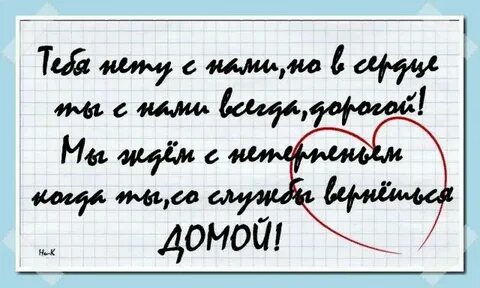 Тебя нету с нами,но в сердце
ты с нами всегда,дорогой!
Мы ждём с нетерпеньем
когда ты,со службы вернёшься
ДОМОЙ!
Ни-К